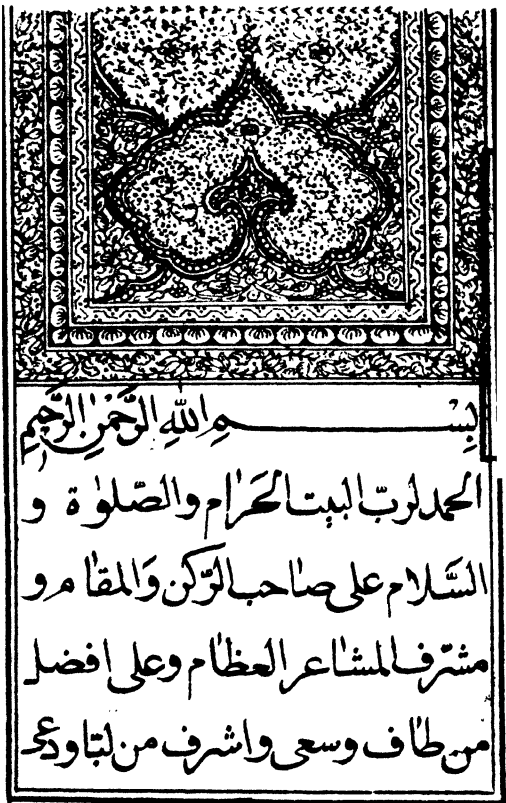 بِسْمِ اللّٰهِ الرَّحْمٰنِ الرَّحِيمِ
الحمد لربّ البيت الحَرام والصّلوٰة و
السَّلام على صاحب الرّكن وَالمقام و
مشرّف المشاعر العظام وعلى افضل
من طاف وسعى واشرف من لبّا ودعى